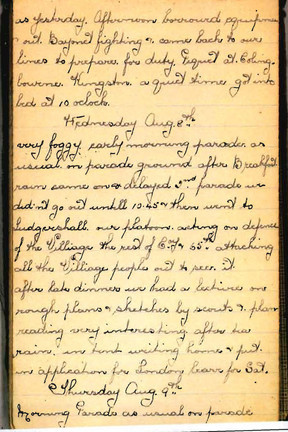 as yesterday. Afternoon borrowed equipmen
out. Bayonet fighting & came back to our
lines to prepare for duty. Piquet at Coling-
bourne. Kingston. a quiet time got into
bed at 10 oclock.
Wednesday Aug 8th
very foggy early morning parade as
usual on parade ground after Breakfast
rain came on & delayed 2nd parade we
did'nt go out untill 10.45 & then went to
Ludgershall. our platoon acting on defence
of the Village the rest of E. & 55th attacking
all the Village people out to see. It.
after late dinner we had a lecture on
rough plans & sketches by scouts & plan
reading very interesting after tea
rain. in tent writing home & put
in application for London leave for Sat.
Thursday Aug 9th
Morning Parade as usual on parade